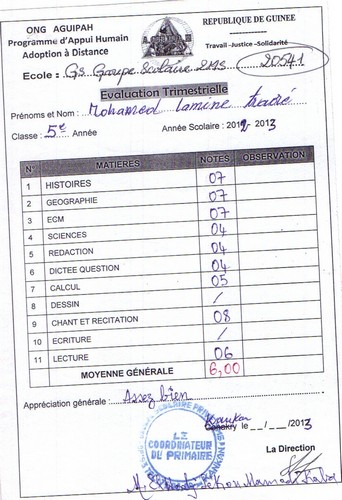 ONG AGUIPAH
Programme d'Appui Humain
Adoption à Distance
REPUBLIQUE DE GUINEE
Travail -Justice -Solidarité
Ecole : GS Groupe Scolaire 20541
Evaluation Trimestrielle
Prénoms et Nom : Mohamed Lamine Traoré
Classe : 5e Année Année Scolaire : 2012-2013
N° MATIERES NOTES OBSERVATION
1 HISTOIRES 07
2 GEOGRAPHIE 07
3 ECM 07
4 SCIENCES 04
5 REDACTION 04
6 DICTEE QUESTION 04
7 CALCUL 05
8 DESSIN /
9 CHANT ET RECITATION 08
10 ECRITURE /
11 LECTURE 06
MOYENNE GÉNÉRALE 6,00
Appréciation générale : Assez bien
Kankan
Conakry le __/__/2013
La Direction
LE
COORDINATEUR
DU PRIMAIRE